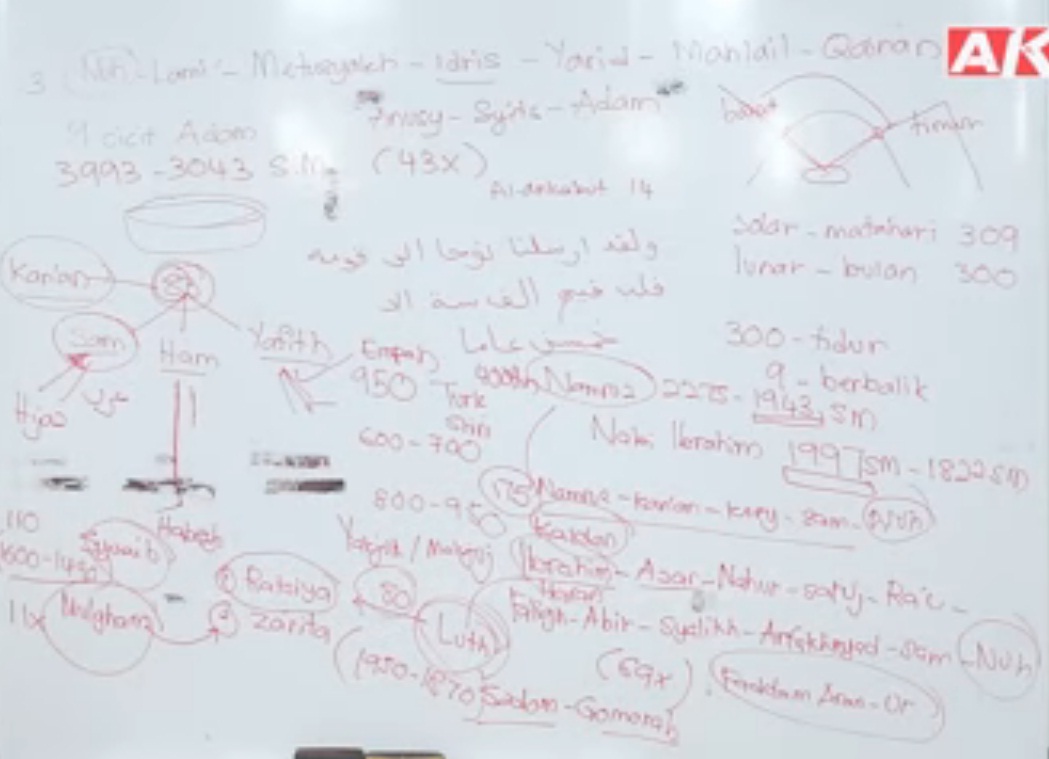 AK
3 Nuh - Lami - Metusyaleh - Idris - Yarid - Mahlail - Qainan
Anusy - Syits - Adam
9 cicit Adam
3993 - 3043 S.M. (43x)
Al-Ankabut 14
barat
timur
ولقد ارسلنا نوحا الى قومه
فلبث فيهم الف سنة الا
خمسين عاما
solar - matahari 309
lunar - bulan 300
300 - tidur
9 - berbalik
Kan'an
Sam
Ham
Yafith
Hijaz
Habsy
Empah
950
Turk
600 - 700
800 - 950
400th Namruz 2275 - 1943 SM
Nabi Ibrahim 1997 SM - 1822 SM
Namruz - Kan'an - - Sam - Nuh
Kaldan
Ibrahim - Azar - Nahur - - Ra'u -
Haran
Faligh - Abir - Syalikh - - Sam - Nuh
110
Syuaib
1600 - 1490
11x
1 Rataiya
2 Zarita
80
Luth
(1950 - 1870) Sadom - Gomorah
(69x)
Aram - Ur